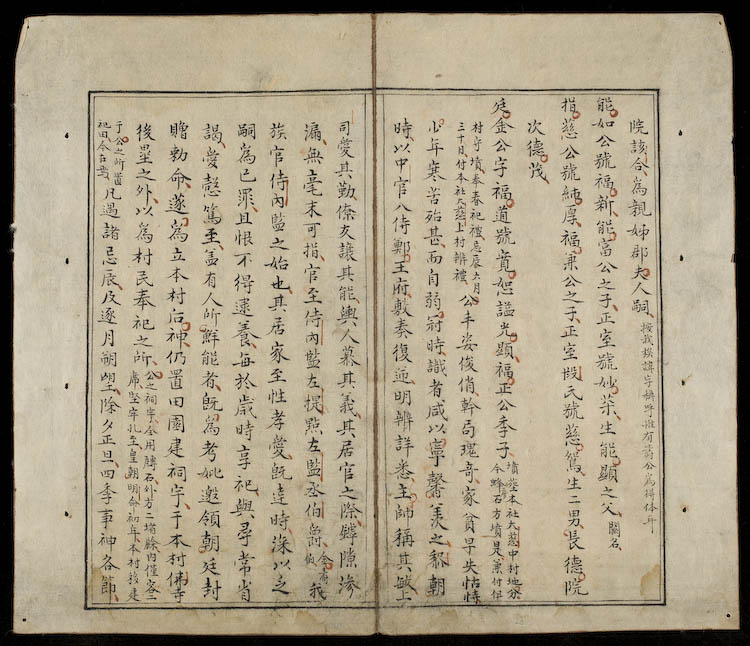 院該合為親姊郡夫人嗣 按我族諱字號字惟有前公為得体耳
能如公號福新能富公之子正室號妙柒生能顯之父 闕名
指慈公號純厚福兼公之子正室段氏號慈篤生二男長德院
次德茂
廷金公字福道號賁恕諡光顯福正公季子 墳塟本社大慈中村地分今蜂石方墳是
村守墳奉春祀禮忌辰六月三十日付本社大慈上村辨禮 公丰姿俊俏幹局瑰奇家貧早失怙恃
少年寒苦殆甚而自弱冠時識者咸以寧馨羡之黎朝
時以中官入侍鄭王府敷奏復逆明辨詳悉主帥稱其敏上
司愛其勤僚友讓其能輿人慕其義其居官之際罅隙滲
漏無毫末可指官至侍內監左提點左監丞伯爵 我
族官侍內監之始也其居家至性孝愛既達時洙以乏
嗣為已罪且恨不得逮養每於歲時享祀與尋常省
謁愛慤篤至盖有人所鮮能者既為考妣邀領朝廷封
贈勅命遂為立本村后神仍置田園建祠宇于本村佛寺
後星之外以為村民奉祀之所 公之祠宇今用磚石外方二堵餘內僅容二席堅牢北至皇朝明命初年本村移建
于公之所置祀田今古 凡遇諸忌辰及逐月朔望除夕正旦四季事神各節